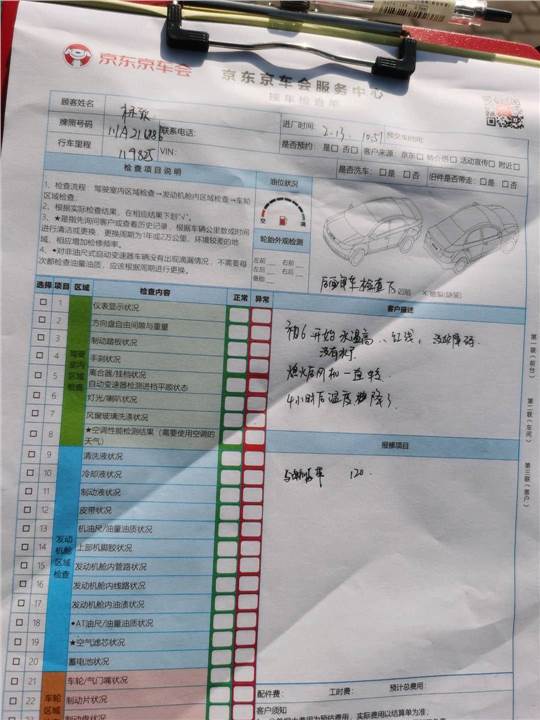 京东京车会
京东京车会服务中心
接车检查单
顾客姓名
牌照号码 联系电话:
行车里程 119825 VIN:
进厂时间: 2-13 10:51 预交车时间:
是否预约: 是□ 否□ 客户来源: 京东□ 转介绍□ 活动宣传□ 附近□
是否洗车: □是 □否 旧件是否带走: □是 □否
检查项目说明
1、检查流程:驾驶室内区域检查→发动机舱内区域检查→车轮
区域检查。
2、根据实际检查结果,在相应结果下划“√”。
3、★是指先询问客户或查看历史记录,根据车辆公里数或时间
进行清洁或更换,更换周期为1年或2万公里,环境较差的地
域,相应增加检修频率。
4、•对非油尺式自动变速器车辆没有出现漏油情况,不需要每
次都检查油量油质,应该根据周期进行更换。
油位状况
空 满
轮胎外观检测
左前 右前
左后 右后
备胎
选择 项目 区域 检查内容 正常 异常
驾驶室内区域检查
1 仪表显示状况
2 方向盘自由间隙与重量
3 制动踏板状况
4 手刹状况
5 离合器/挂档状况
自动变速器检测进档平顺状态
6 灯光/喇叭状况
7 风窗玻璃洗涤状况
8 ★空调性能检测结果(需要使用空调的
天气)
发动机舱区域检查
9 清洗液状况
10 冷却液状况
11 制动液状况
12 皮带状况
13 机油尺/油量油质状况
14 上部机脚胶状况
15 发动机舱内管路状况
16 发动机舱内线路状况
17 发动机舱内油渍状况
18 •AT油尺/油量油质状况
19 ★空气滤芯状况
20 蓄电池状况
车轮区域
21 车轮/气门嘴状况
22 制动片状况
23 制动盘状况
客户描述
开始 水温高、红线, 没故障码
没有水了
熄火后风扇一直转
4小时后温度降了
报修项目
120
配件费: 工时费: 预计总费用:
客户须知
第一联(前台)
第二联(车间)